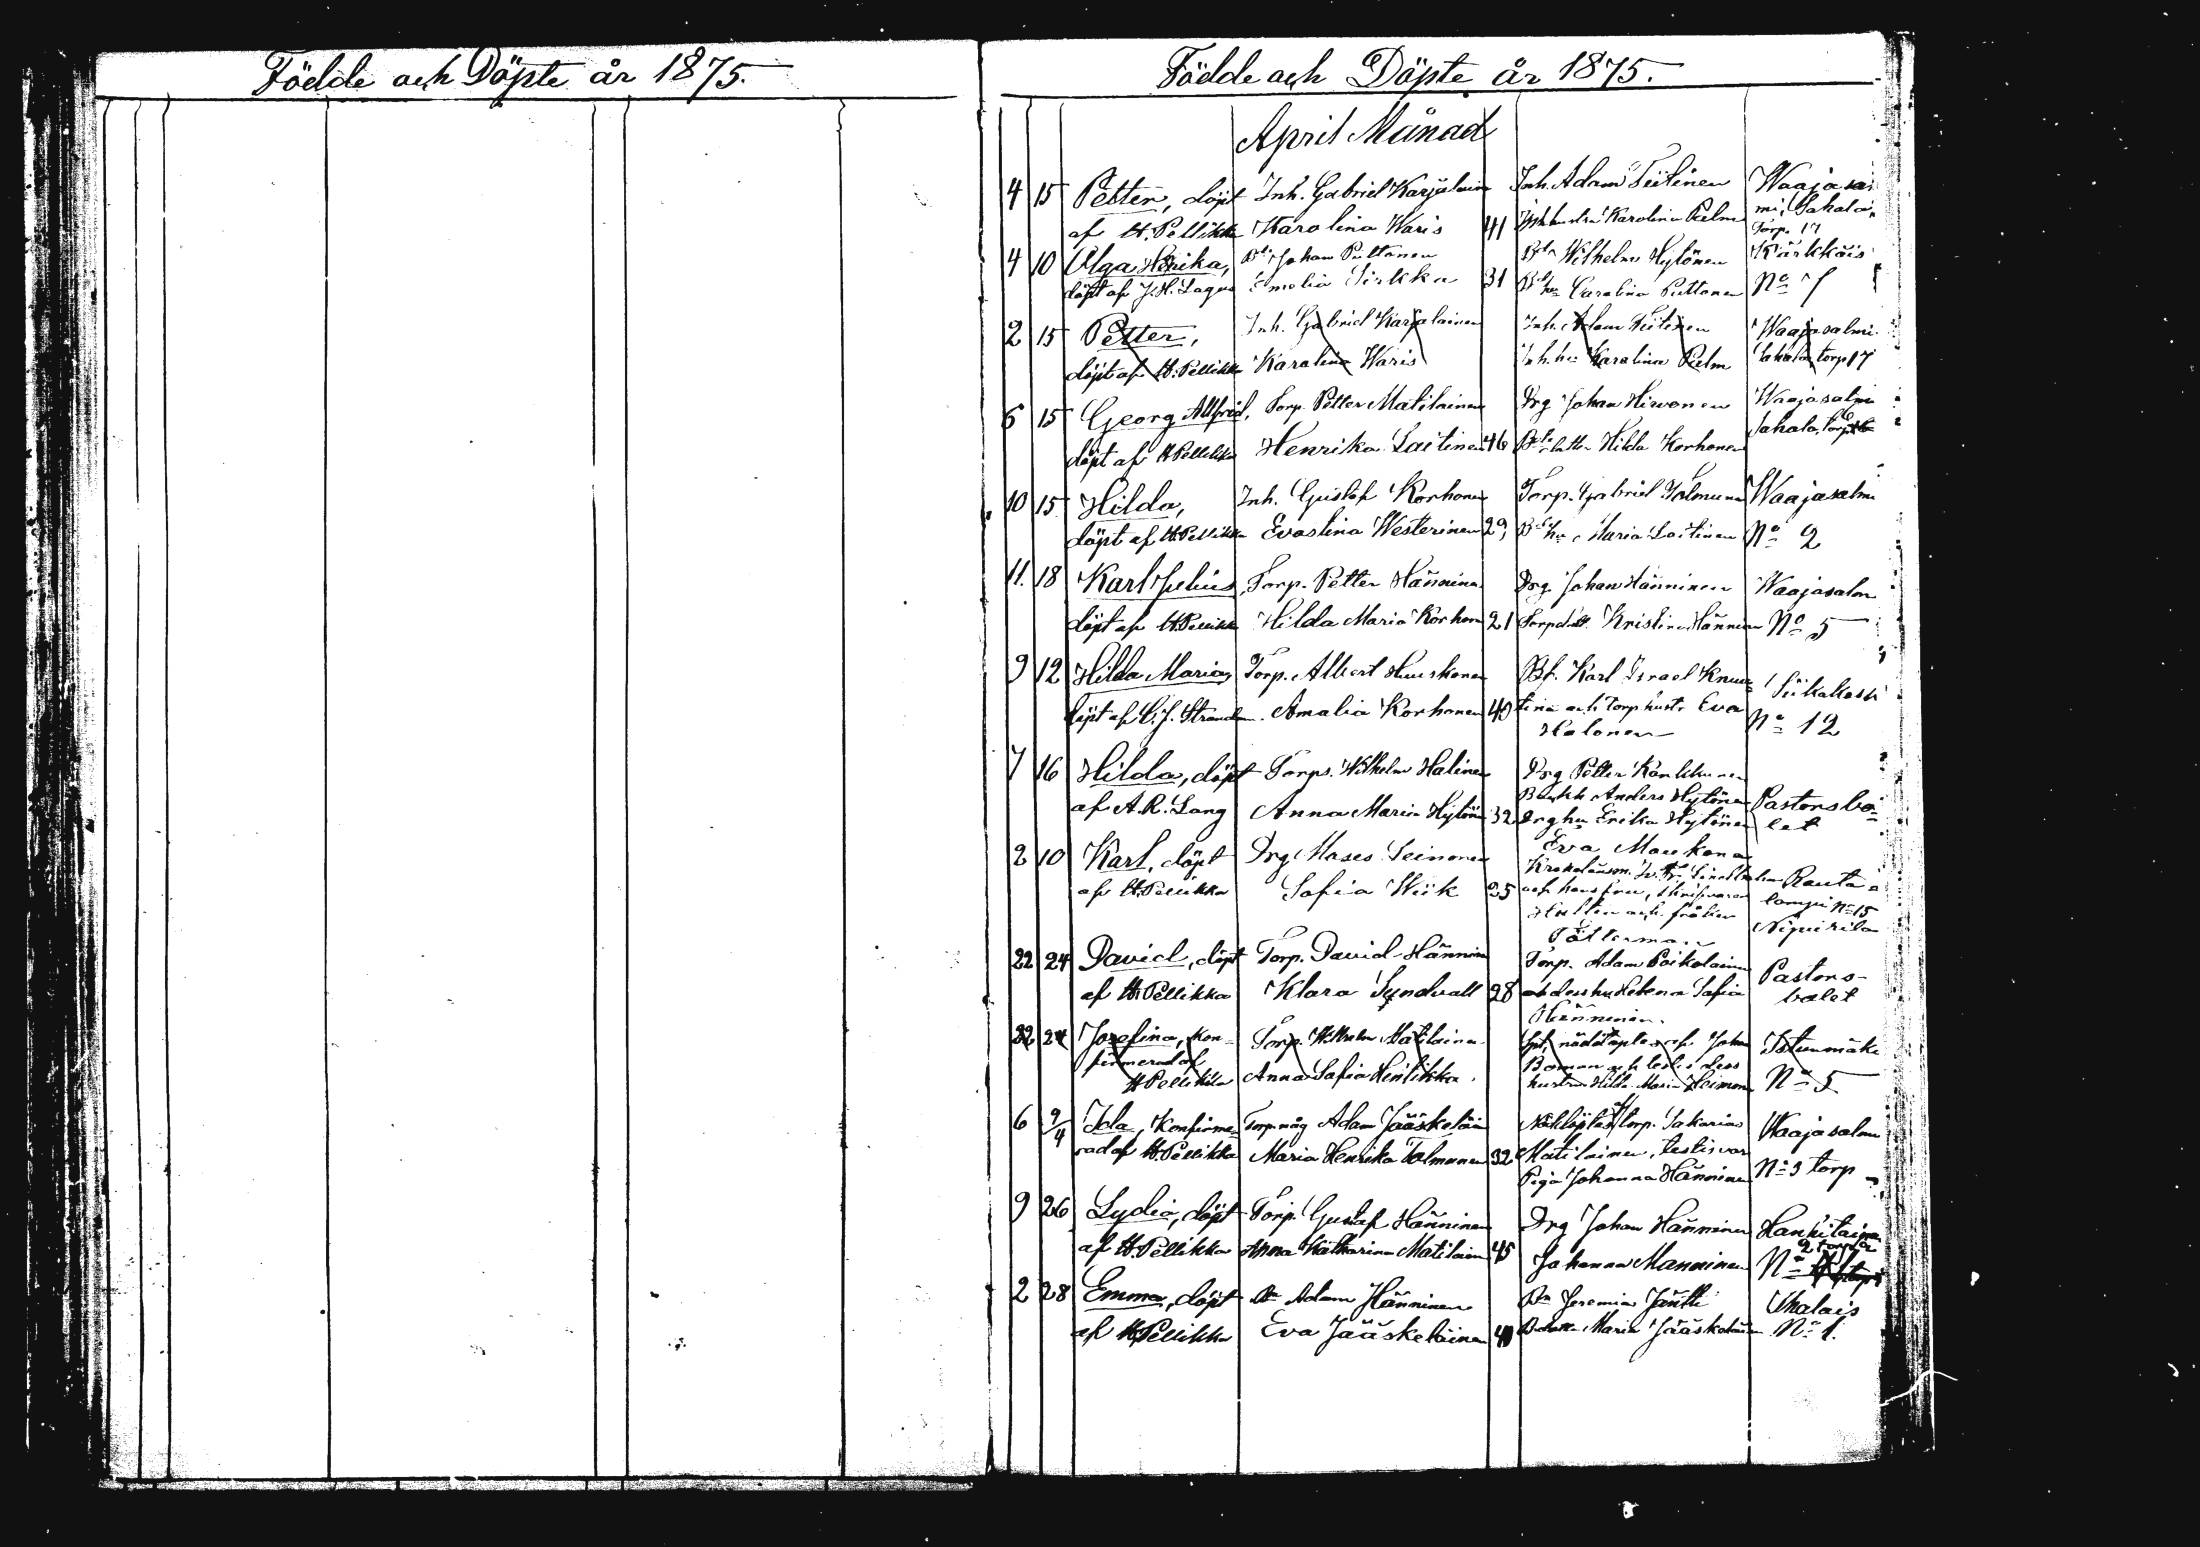 Födde och Döpte år 1875.
Födde och Döpte år 1875.
April Månad
4 15 Petter, döpt Inh. Gabriel Karjalainen Inh. Adam Tiitinen Waajasal
af H. Pellikka Karolina Waris 41 Karolina Palm mi, Sahala,
torp. 17
4 10 Olga Henrika, Johan Puttonen Wilhelm Hytönen Kärkkäis
döpt af J.H. Lagus Emelia Sirkka 31 Carolina Puttonen No 7
2 15 Petter, Inh. Gabriel Karjalainen Inh. Adam Tiitinen Waajasalmi
döpt af H. Pellikka Karolina Waris Inh. hu Karolina Palm Sahala, torp 17
6 15 Georg Alfrid, Torp. Petter Matilainen Drg Johan Hirvonen Waajasalmi
döpt af H Pellikka Henrika Laitinen 46 Hilda Korhonen Sahala, torp
10 15 Hilda, Inh. Gustaf Korhonen Torp. Gabriel Tolmunen Waajasalmi
döpt af H. Pellikka Evastina Westerinen 29, Maria Laitinen No 2
11. 18 Karl Julius, Torp. Petter Hänninen Drg Johan Hänninen Waajasalm
döpt af H. Pellikka Hilda Maria Korhonen 21 Torpdott. Kristina Hänninen No 5
9 12 Hilda Maria, Torp. Albert Huuskonen Bf. Karl Israel Knuu= Siikakoski
döpt af C. J. Strandm. Amalia Korhonen 40 tina och Torp hustr Eva No 12
Halonen
7 16 Hilda, döpt Torps. Wilhelm Halinen Drg Petter Karkkunen
af A. R. Lang Anna Maria Hytönen 32 Anders Hytönen Pastorsbo=
Drg hu Erika Hytönen let
2 10 Karl, döpt Drg Moses Leinonen Eva Maukonen
af H. Pellikka Sofia Wiik 25 och hans fru, Rauta=
och fröken lampi No 15
22 24 David, döpt Torp. David Hänninen Torp. Adam Poikolainen Pastors-
af H. Pellikka Klara Sundvall 28 Helena Sofia bolet
Hänninen.
22 24 Josefina, kon= Torp. Wilhelm Matilainen nöddöptes af Johan Istunmäki
firmerad af Anna Sofia Hintikka. Boman och testis dess No 5
H Pellikka hustru Hilda Maria Heimonen
6 9/4 Ida, Konfirme= Torp. måg Adam Jääskeläin Nöddöptes af torp. Sakarias Waajasalm
rad af H. Pellikka Maria Henrika Tolmunen 32 Matilainen, testis var No 3 torp
Piga Johanna Hänninen
9 26 Lydia, döpt Torp. Gustaf Hänninen Drg Johan Hänninen Hankitaipale
af H. Pellikka Anna Katharina Matilainen 45 Johanna Manninen No 2 torpare
2 28 Emma, döpt Bn Adam Hänninen Bn Jeremias Jäntti Uhalais
af H. Pellikka Eva Jääskeläinen 40 Maria Jääskeläinen No 1.